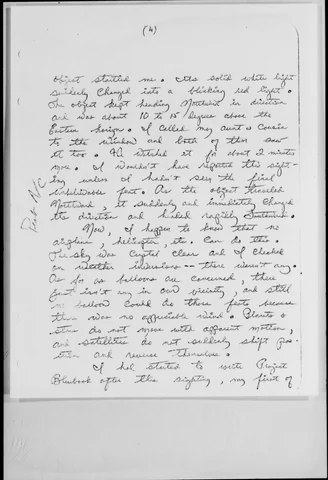 (4)
object startled me. Its solid white light
suddenly changed into a blinking red light.
The object kept heading Northwest in direction
and was about 10 to 15 degrees above the
Eastern horizon. I called my aunt & cousin
to the window and both of them saw
it too. We watched it for about 2 minutes
more. I wouldn't have reported this sight-
ing unless I hadn't seen the final
unbelievable feat. As the object traveled
Northward, it suddenly and immediately changed
the direction and headed rapidly Southward.
Now, I happen to know that no
airplane, helicopter, etc. can do this.
The sky was crystal clear and I checked
on weather inversions -- there weren't any.
As far as balloons are concerned, there
just isn't any in our vicinity, and still
no balloon could do those feats because
there was no appreciable wind. Planets &
stars do not move with apparent motion,
and satellites do not suddenly shift pos-
ition and reverse themselves.
I had started to write Project
Bluebook after this sighting, my first of